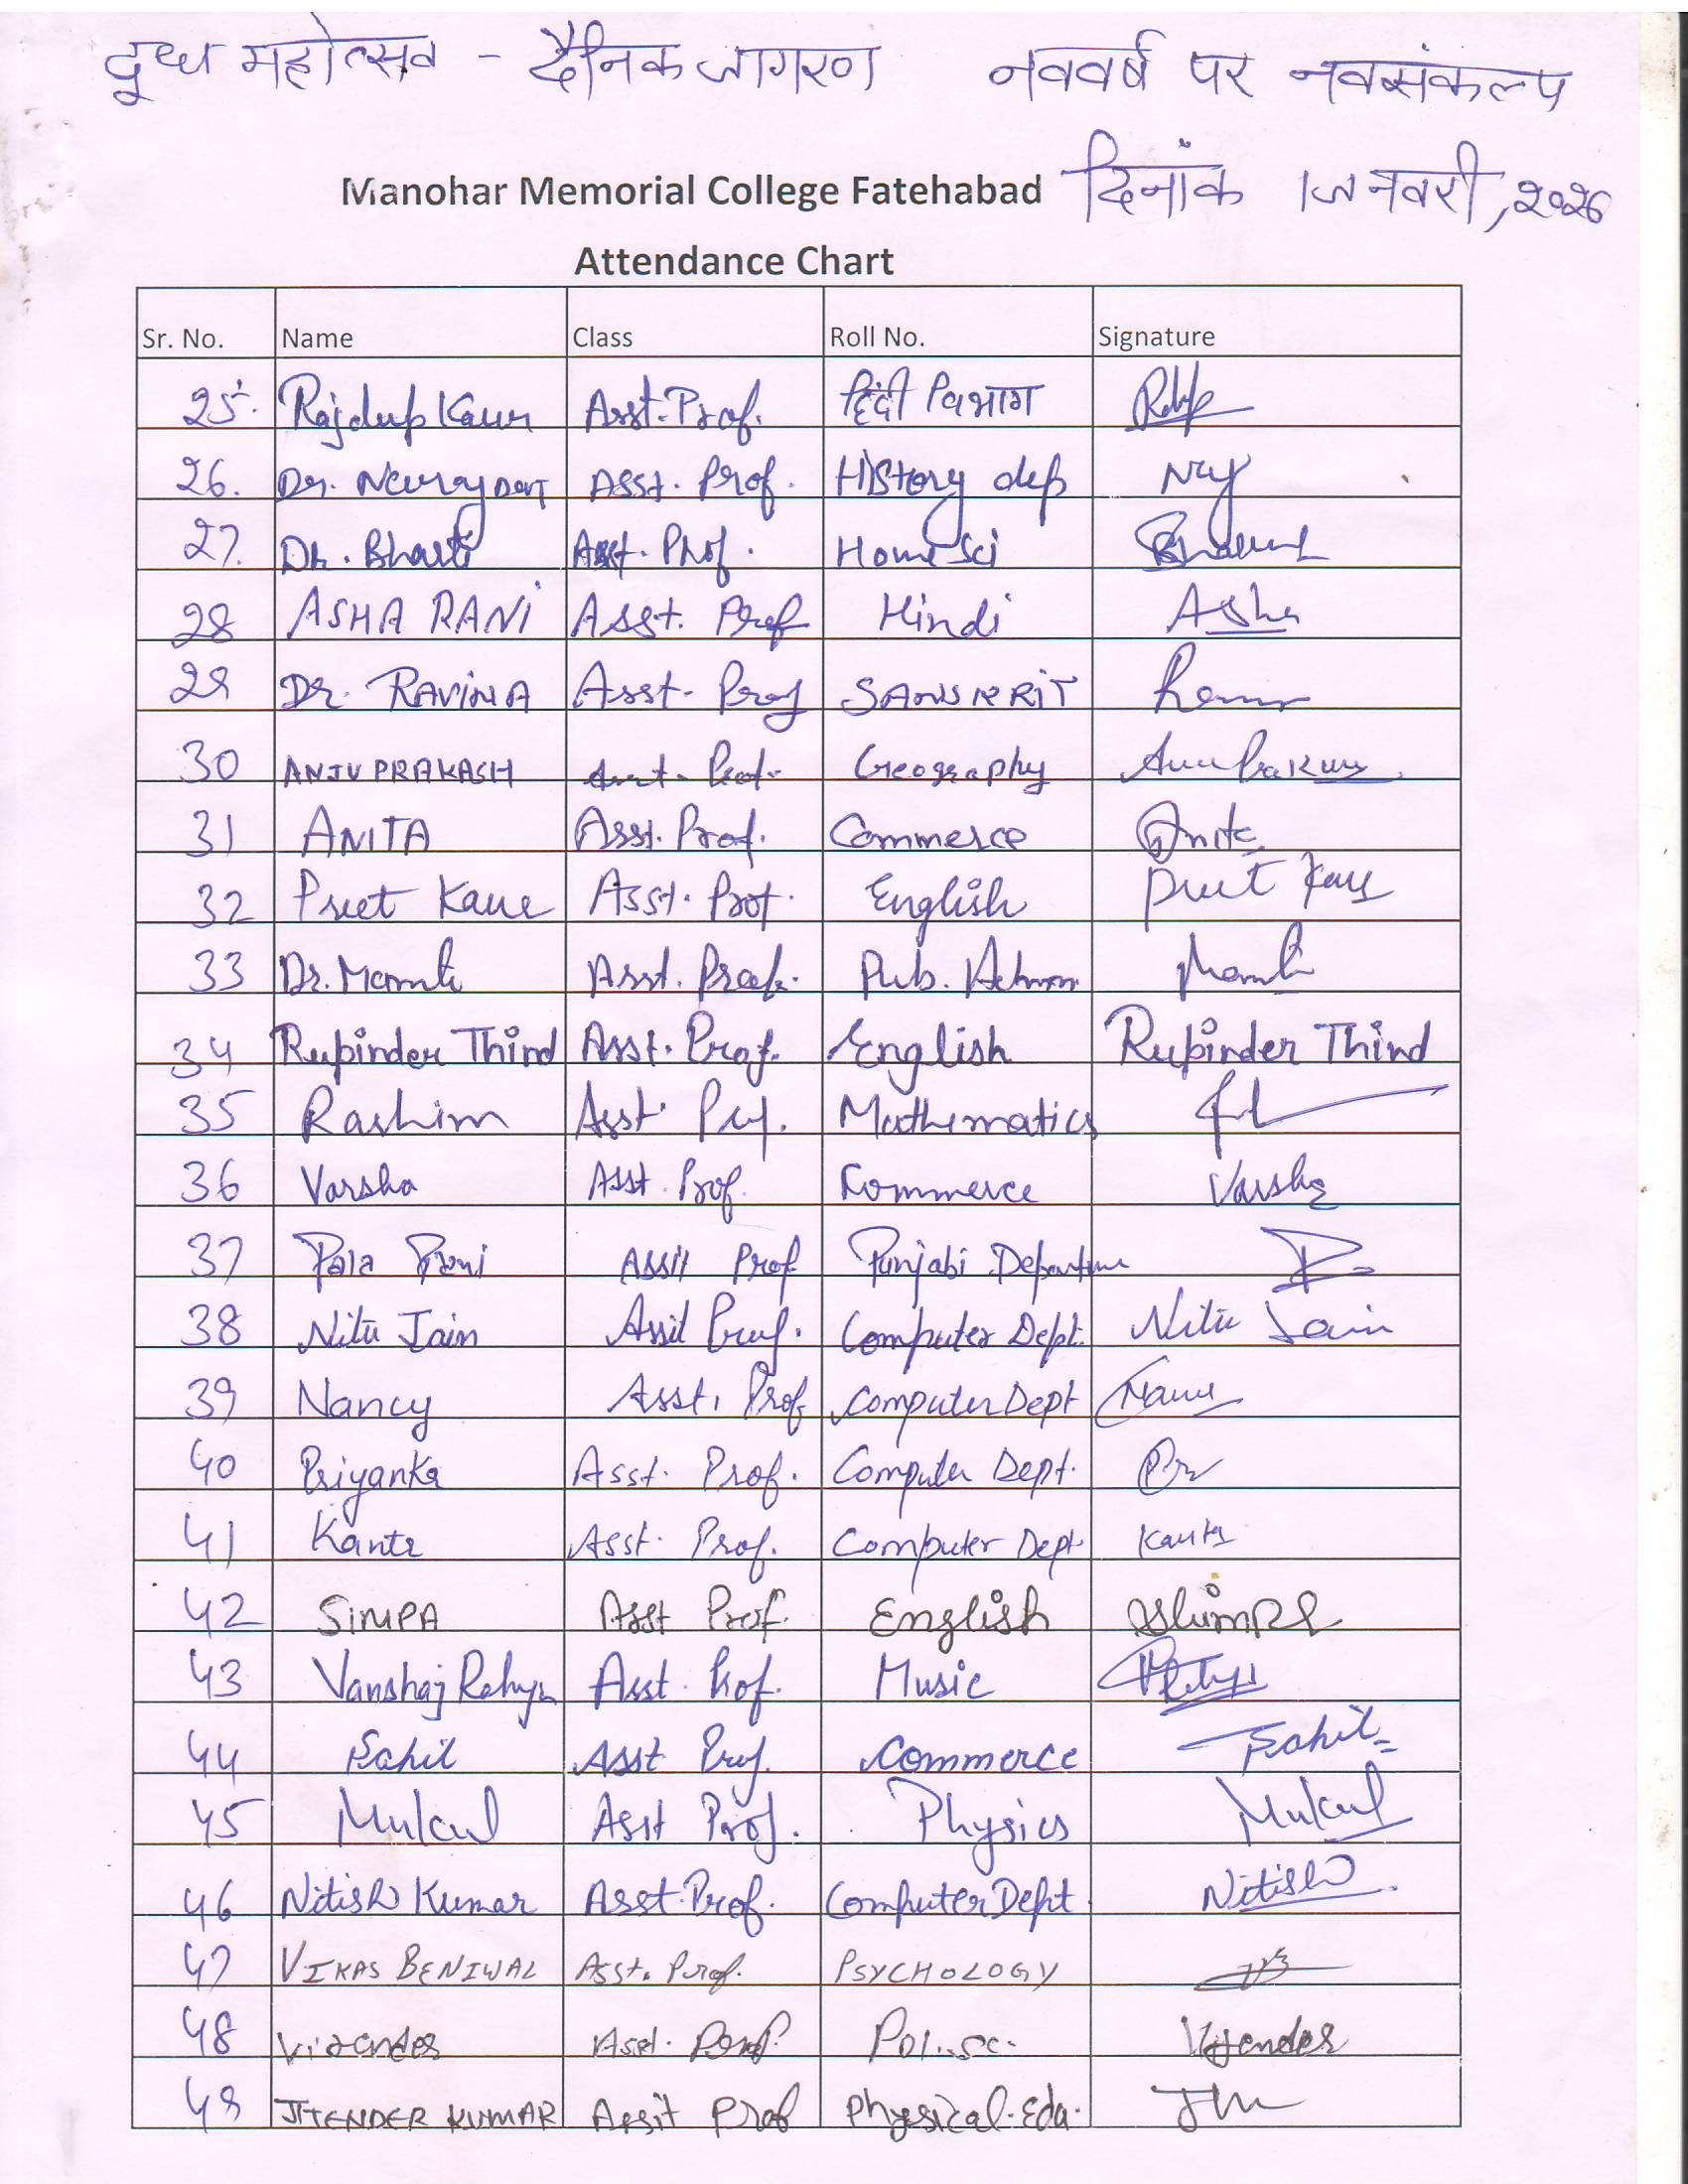 दूध महोत्सव - दैनिक जागरण नववर्ष पर नवसंकल्प
Manohar Memorial College Fatehabad दिनांक 1 जनवरी, 2026
Attendance Chart
Sr. No. Name Class Roll No. Signature
25. Rajdeep Kaur Asst. Prof. हिंदी विभाग
26. Dr. Neeraj Asst. Prof. History dep
27. Dr. Bharti Asst. Prof. Home Sci
28 ASHA RANI Asst. Prof Hindi Asha
29 Dr. RAVINA Asst. Prof SANSKRIT
30 ANJU PRAKASH Asst. Prof. Geography
31 ANITA Asst. Prof. Commerce Anita
32 Preet Kaur Asst. Prof. English Preet Kaur
33 Dr. Mamta Asst. Prof. Pub. Admn. Mamta
34 Rupinder Thind Asst. Prof. English Rupinder Thind
35 Rashim Asst Prof. Mathematics
36 Varsha Asst. Prof. Commerce Varsha
37 Pala Rani Assit Prof Punjabi Department
38 Nitu Jain Assit Prof. Computer Dept. Nitu Jain
39 Nancy Asst. Prof. Computer Dept
40 Priyanka Asst. Prof. Computer Dept.
41 Kanta Asst. Prof. Computer Dept. Kanta
42 SIMPA Asst Prof. English
43 Vanshaj Asst. Prof. Music
44 Sahil Asst Prof. Commerce Sahil
45 Mukul Asst Prof. Physics Mukul
46 Nitish Kumar Asst. Prof. Computer Dept Nitish
47 VIKAS BENIWAL Asst. Prof. PSYCHOLOGY
48 Virender Asst. Prof. Pol. Sc.
49 JITENDER KUMAR Assit Prof Physical. Edu.